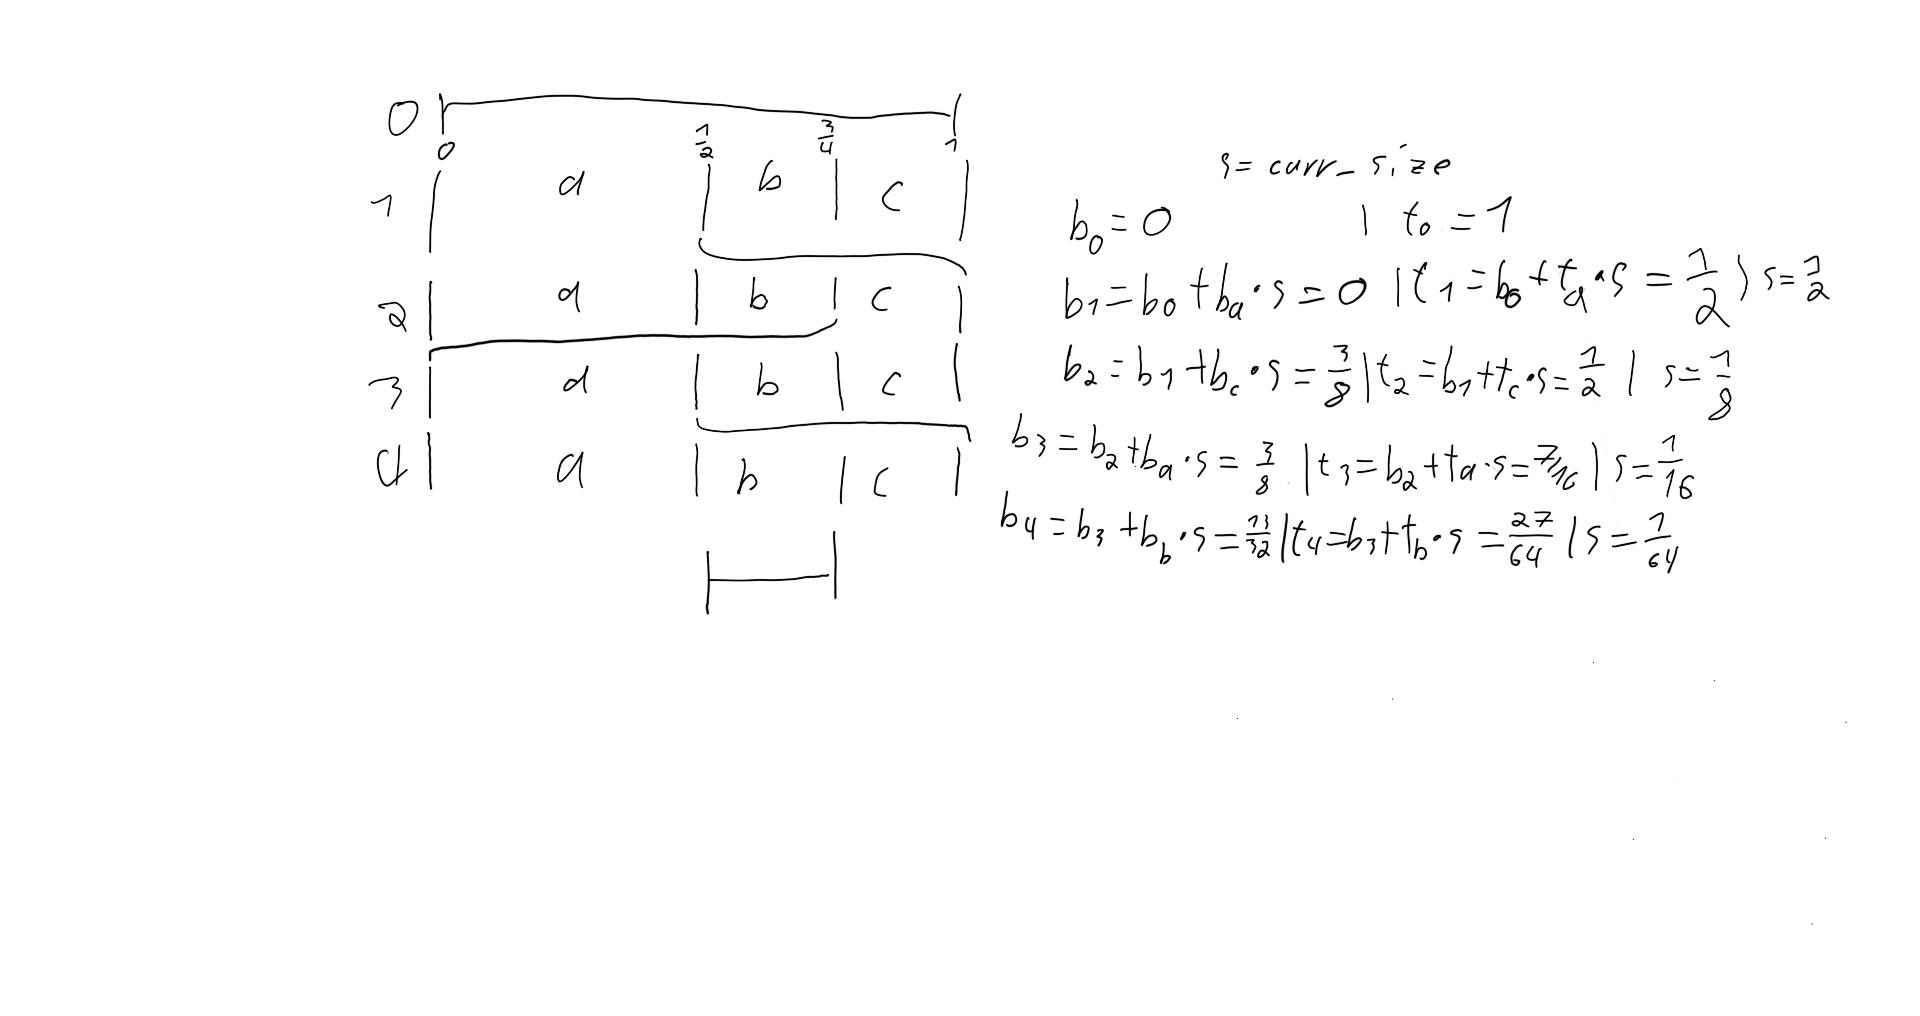 0
0 1/2 3/4 1
1 a b c
2 a b c
3 a b c
4 a b c
s = curr_size
b₀ = 0 | t₀ = 1
b₁ = b₀ + bₐ · s = 0 | t₁ = b₀ + tₐ · s = 1/2 | s = 1/2
b₂ = b₁ + b_c · s = 3/8 | t₂ = b₁ + t_c · s = 1/2 | s = 1/8
b₃ = b₂ + bₐ · s = 3/8 | t₃ = b₂ + tₐ · s = 7/16 | s = 1/16
b₄ = b₃ + b_b · s = 13/32 | t₄ = b₃ + t_b · s = 27/64 | s = 1/64